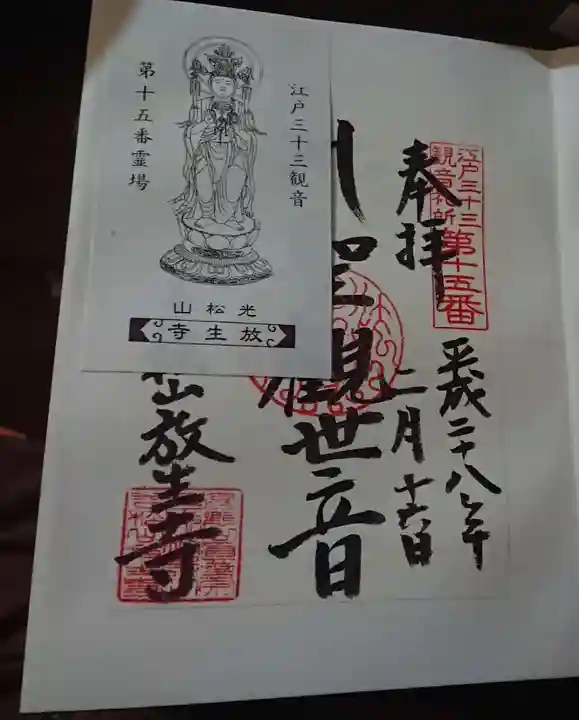 江戸三十三観音
第十五番霊場
光松山
放生寺
江戸三十三
観音札所
第十五番
奉拝
平成二十八年
二月十六日
聖観世音
松山放生寺